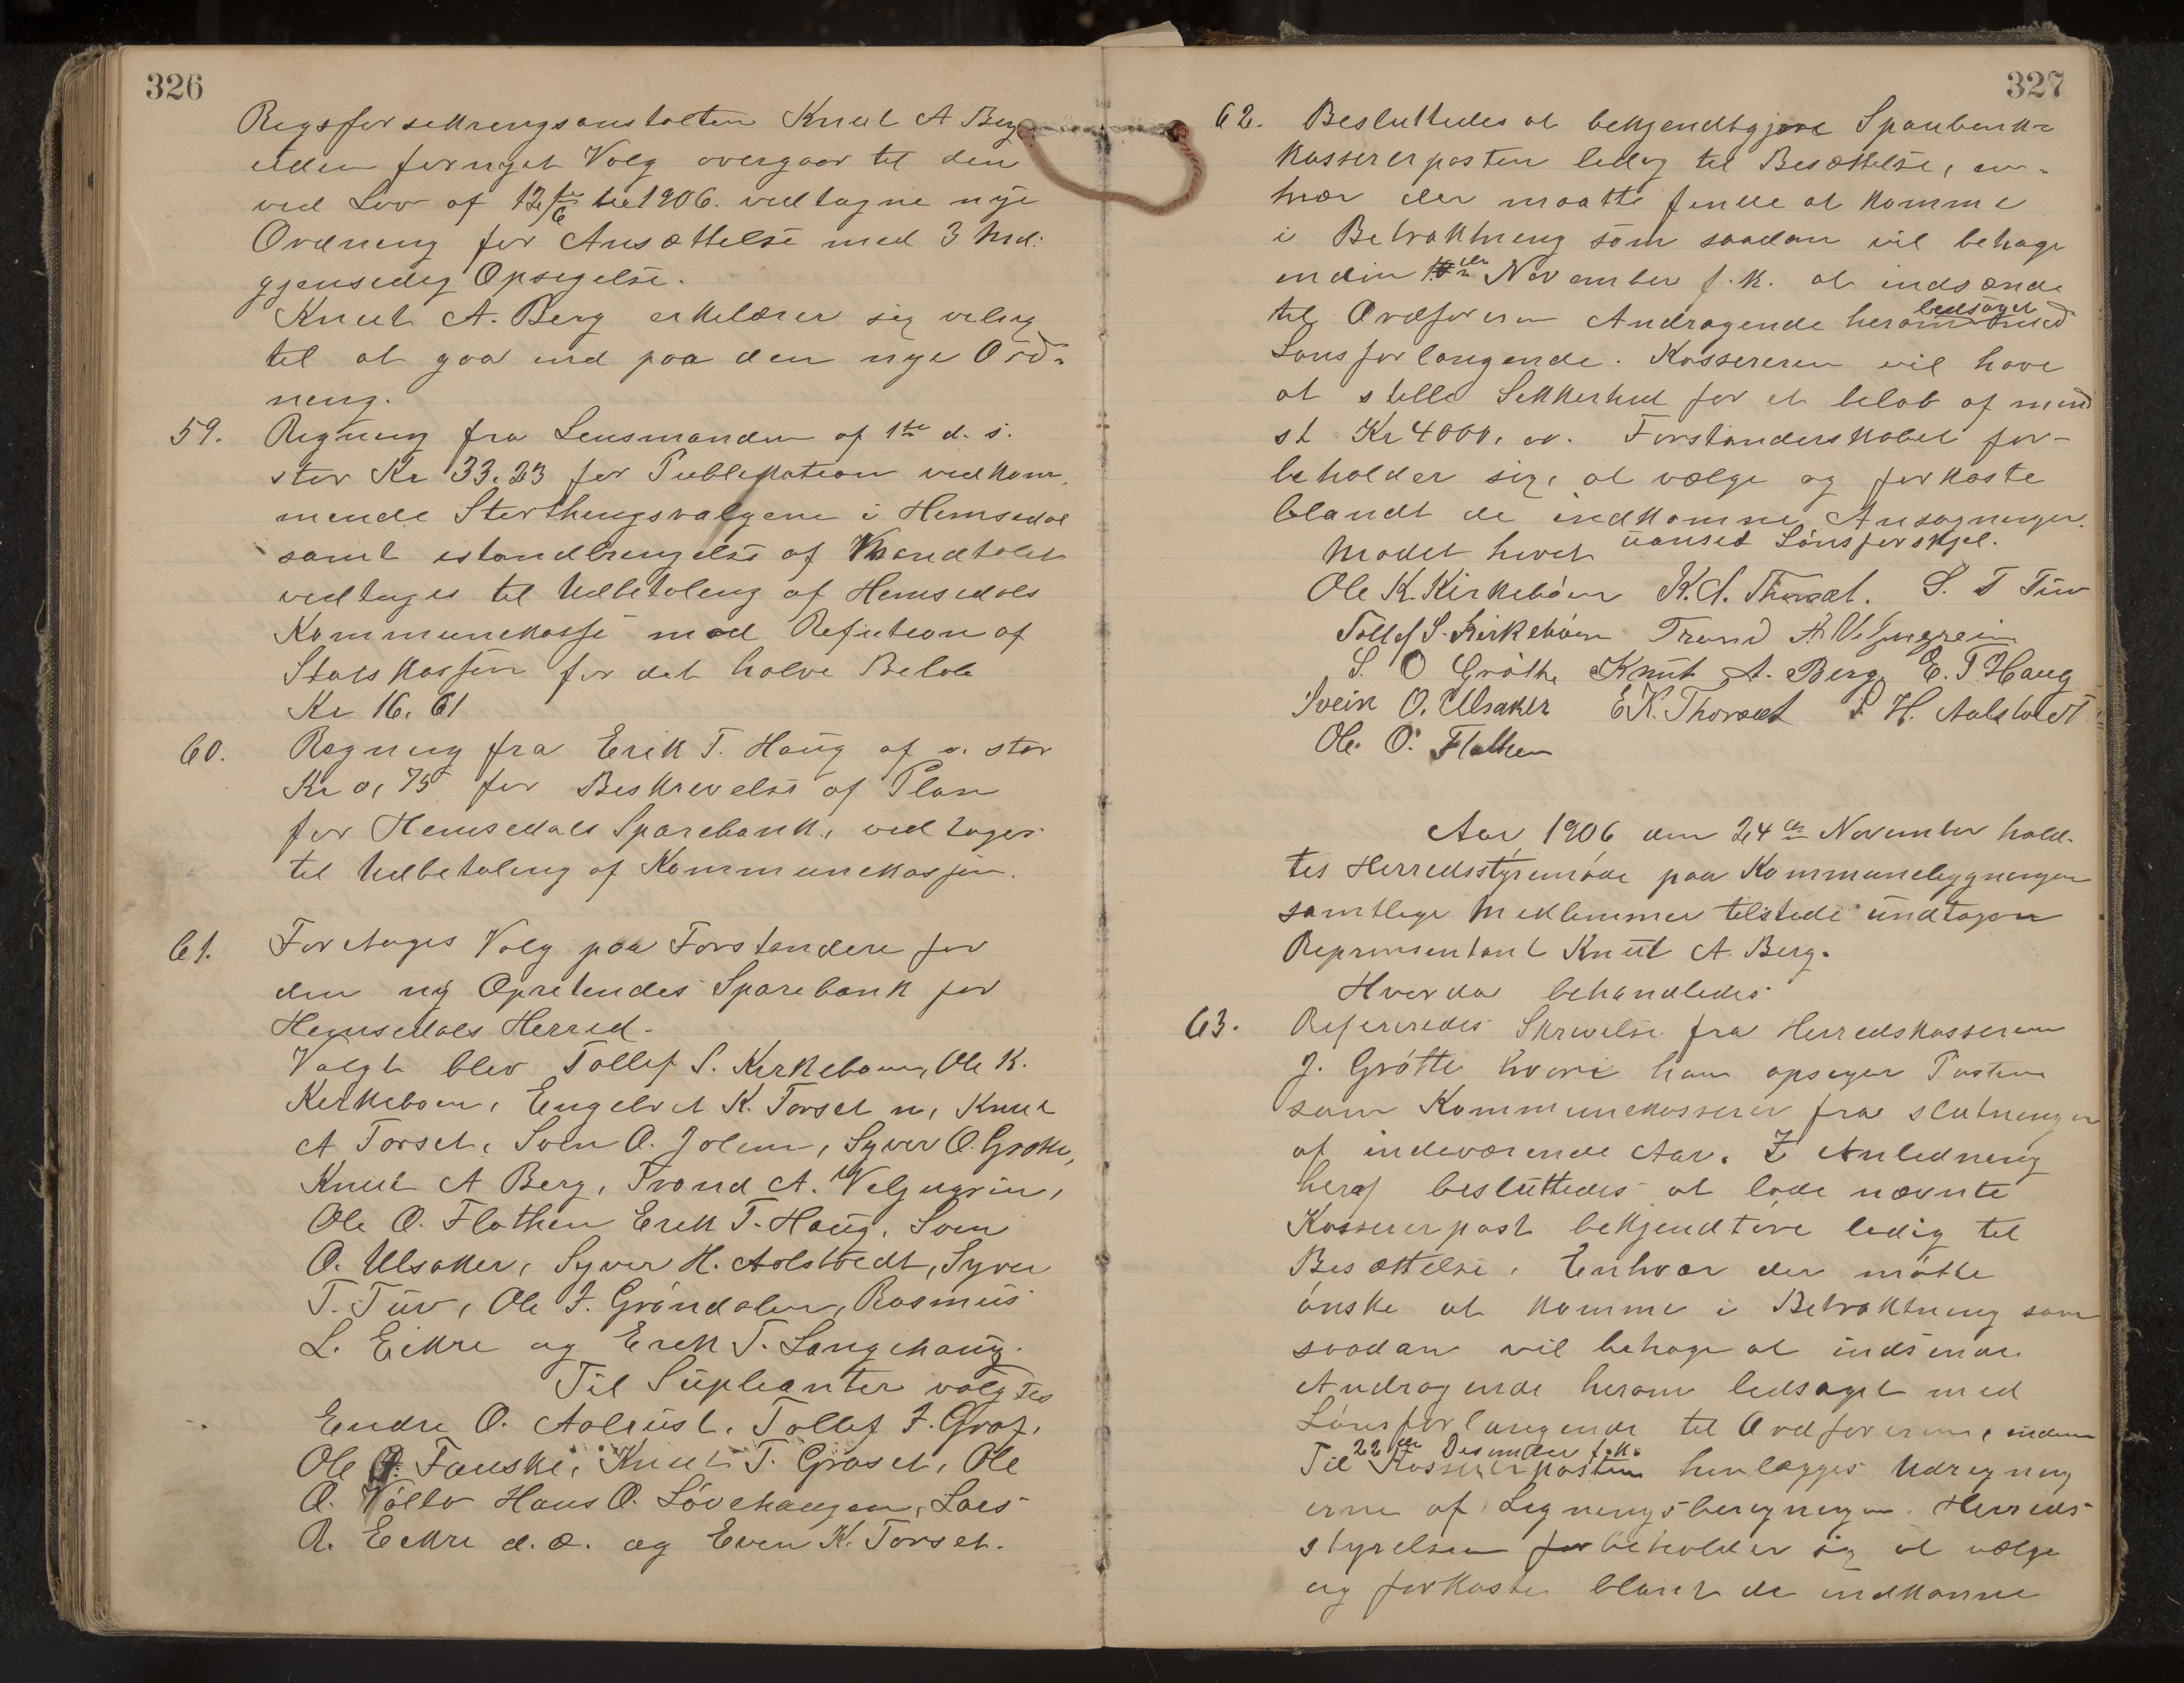 326
Regsforsekrengsanstalten Knut A Berg
uden fornyet Valg overgaar til den
ved Lov af 12te/6 1906. vedtagne nye
Ordneng for Ansættelse med 3 Md:
gjensedeg Opsigelse.
Knut A. Berg erkelærer sig velig
til at gaa ind paa den nye Ord-
neng.
59. Regneng fra Lensmanden af 1ste d. s.
stor Kr 33.23 for Publikation vedkom-
mende Storthengsvalgene i Hemsedal
samt istandbrengelse af Mandtalet
vedtages til Udbetaleng af Hemsedals
Kommunekasse mod Refution af
Statskassen for det halve Beløb
Kr 16,61
60. Regneng fra Erik T. Haug af s. stor
Kr 0,75 for Beskrevelse af Plan
for Hemsedals Sparebank, vedtages
til Udbetaleng af Kommunekassen.
61. Foretages Valg paa Forstandere for
den ny Opretendes Sparebank for
Hemsedals Herred.
Valgt blev Tollef S. Kerkeboen, Ole K.
Kerkeboen, Engebret K. Torset n, Knut
A Torset, Sven O. Jolen, Syver O. Grøthe,
Knut A Berg, Trond A. Veljugrein,
Ole O. Flathen Erek T. Haug, Sven
O. Ulsaker, Syver H. Aalstvedt, Syver
T. Tuv, Ole T. Gröndalen, Rasmus
L. Eikre og Erek T. Langehaug.
Til Supleanter valgtes
Endre O. Aalrust, Tollef T. Graf,
Ole O. Fauske, Knut T. Grøset, Ole
O. Hans O. Lövehaugen, Lars
R. Eekre d. æ. og Even K. Torset.
327
62. Besluttedes at bekjendtgjøre Sparbenk-
kassererposten ledeg til Besættelse, en-
hvær der maatte finde at komme
i Betraktneng som saadan vil behage
enden November f. k. at indsænde
til Ordføreren Andragende herom ledsaget med
Lønsforlangende. Kassereren vil have
at stelle Sekkerhed for et beløb af mind
st Kr 4000,oo. Forstanderskabet for-
beholder sig, at vælge og forkaste
blandt de indkomne Ansøgninger.
uanset Lönsforskjel.
Mødet hevet
Ole K. Kirkebóen K. A. Thorset. S. T Tuv
Tollef S. Kirkeboen Trond A. Veljugrein
S. O Gróthe Knut A. Berg E. T. Haug
Svein O. Ulsaker E K. Thorset S H. Aalstvedt
Ole O. Flathen
Aar 1906 den 24de November hold-
tes Herredsstyremøde paa Kommunebygnengen
samtlege Medlemmer tilstede undtagen
Representant Knut A. Berg.
Hvorda behandledes
63. Refereredes Skrevelse fra Herredskassereren
J. Grótte hvori han opseger Posten
som Kommunekasserer fra slutnengen
af indeværende Aar. I Anledneng
heraf besluttedes at lade nævnte
Kassererpost bekjendtøre ledig til
Besættelse. Enhvær der måtte
ónske at komme i Betraktneng som
saadan vil behage at indsende
Andragende herom ledsaget med
Lónsforlangende til Ordføreren, inden
22de Desember f.k.
Til Kassererposten henlægges Udregneng
erne af Legnengsberegnengen. Herreds-
styrelsen forbeholder sig at vælge
og forkaste blandt de indkomne